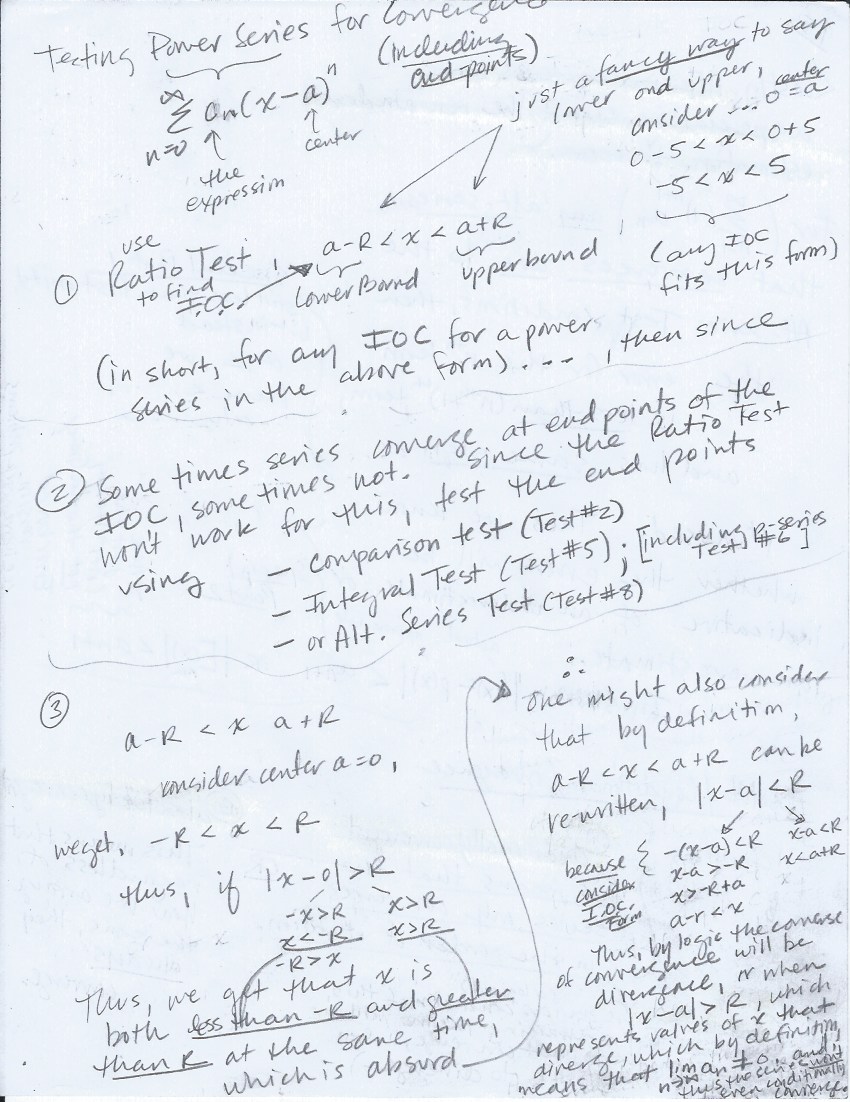 Testing Power Series for Convergence
(including end-points)
∞
Σ an(x-a)^n
n=0
the expression
center
just a fancy way to say
lower and upper,
consider ... 0 = a
center
0-5 < x < 0+5
-5 < x < 5
(any IOC
fits this form)
① use
Ratio Test :
to find
IOC.
a-R < x < a+R
Lower Bound
upper bound
(in short, for any IOC for a power
series in the above form) . . . . , then since
② Some times series converge at end points of the
IOC, some times not. since the Ratio Test
won't work for this, test the end points
using
- Comparison test (Test #2)
- Integral Test (Test #5) ; [including P-series
Test] #6]
- or Alt. Series Test (Test #8)
③
a-R < x a+R
consider center a=0,
we get, -R < x < R
thus, if |x-0|>R
-x>R x>R
x<-R x>R
-R>x
Thus, we get that x is
both less than -R and greater
than R at the same time,
which is absurd
∴
one might also consider
that by definition,
a-R < x < a+R can be
re-written, |x-a|<R
because { -(x-a)<R x-a<R
consider x-a>-R x<a+R
IOC x>-R+a
Form a-r<x
Thus, by logic the converse
of convergence will be
divergence, or when
|x-a|>R, which
represents values of x that
diverge, which by definition,
means that lim an ≠ 0, and
n→∞
thus the series won't
even conditionally
converge.